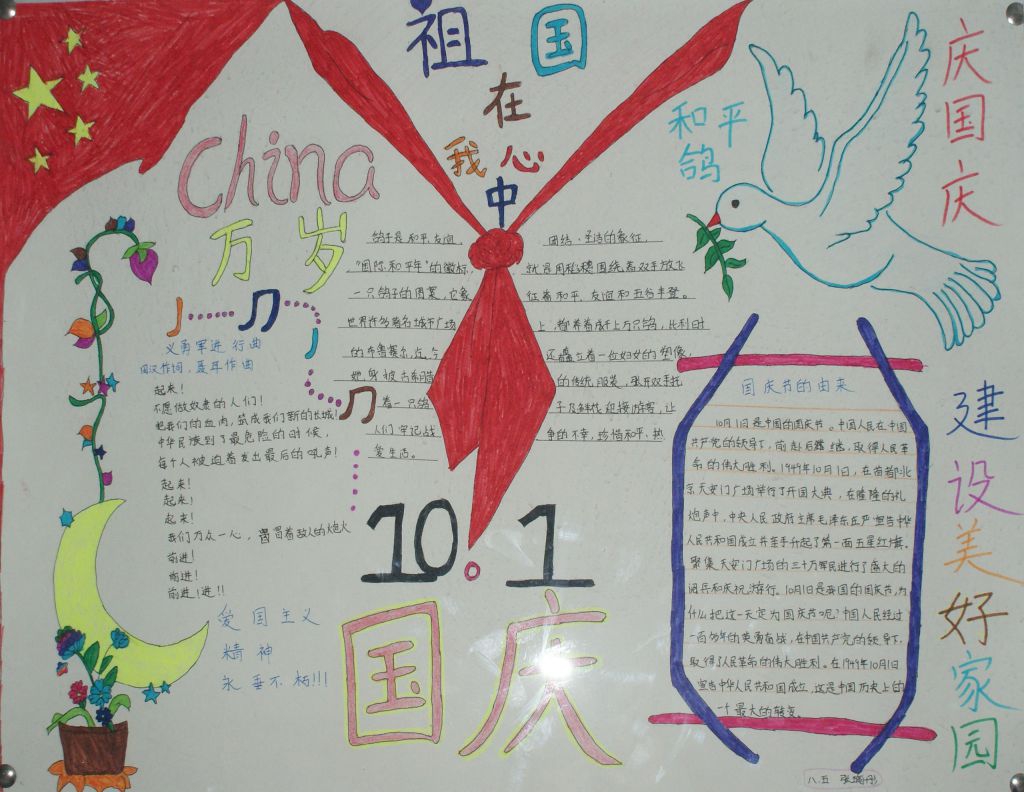 祖国
在
我心
中
China
万岁
和平
鸽
庆国庆
建设美好家园
鸽子是和平、友谊、团结、圣洁的象征,
"国际和平年"的徽标,就是用松穗围绕着双手放飞
一只鸽子的图案,它象征着和平、友谊和五谷丰登。
世界许多著名城市广场上,都养着成千上万只鸽,比利时
的布鲁塞尔,迄今还矗立着一位妇女的塑像,
她身被古希腊的传统服装,张开双手托
着一只鸽子及鲜花迎接游客,让
人们牢记战争的不幸,珍惜和平、热
爱生活。
义勇军进行曲
田汉作词,聂耳作曲
起来!
不愿做奴隶的人们!
把我们的血肉,筑成我们新的长城!
中华民族到了最危险的时候,
每个人被迫着发出最后的吼声!
起来!
起来!
起来!
我们万众一心,冒着敌人的炮火
前进!
前进!
前进!进!!
爱国主义
精神
永垂不朽!!!
10.1
国庆
国庆节的由来
10月1日是中国的国庆节。中国人民在中国
共产党的领导下,前赴后继,取得人民革
命的伟大胜利。1949年10月1日,在首都北
京天安门广场举行了开国大典,在隆隆的礼
炮声中,中央人民政府主席毛泽东庄严宣告中华
人民共和国成立并亲手升起了第一面五星红旗。
聚集天安门广场的三十万军民进行了盛大的
阅兵和庆祝游行。10月1日是我国的国庆节,为
什么把这一天定为国庆节呢?中国人民经过
一百多年的英勇奋战,在中国共产党的领导下,
取得了人民革命的伟大胜利。在1949年10月1日
宣告中华人民共和国成立,这是中国历史上的
一个最大的转变。
八.五 张